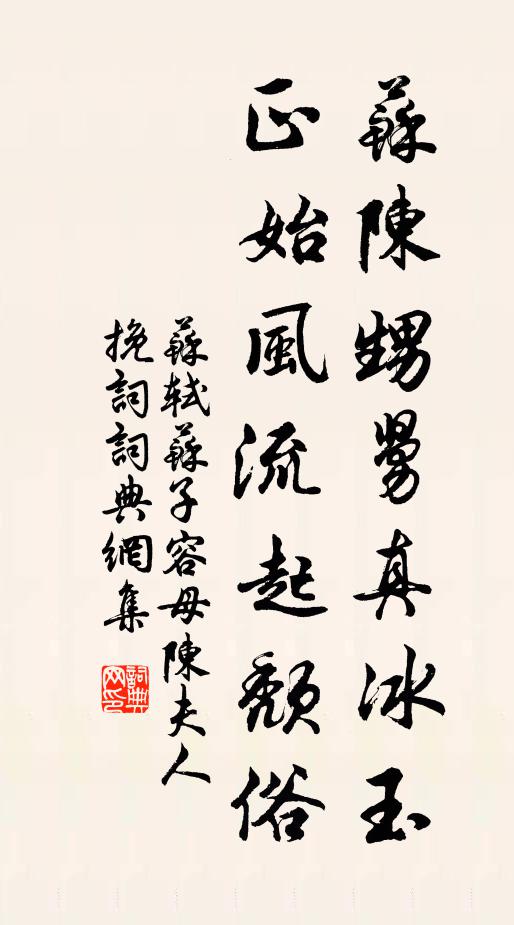 蘇陳甥舅真冰玉
正始風流起頹俗
蘇軾蘇子容母陳夫人
挽詞詞典網集
詞典網印